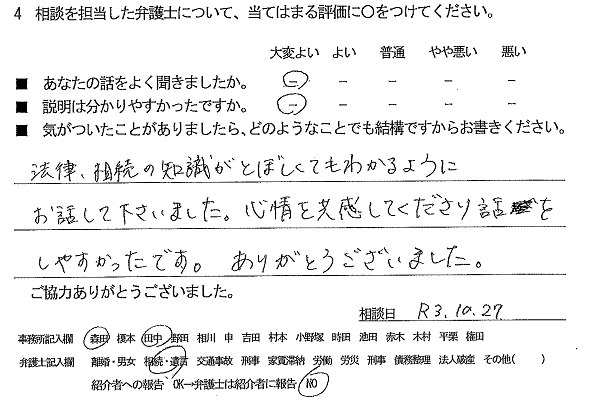 4 相談を担当した弁護士について、当てはまる評価に○をつけてください。
大変よい よい 普通 やや悪い 悪い
■ あなたの話をよく聞きましたか。 － － － － －
■ 説明は分かりやすかったですか。 － － － － －
■ 気がついたことがありましたら、どのようなことでも結構ですからお書きください。
法律、相続の知識がとぼしくてもわかるように
お話して下さいました。心情を共感してくださり話を
しやすかったです。ありがとうございました。
ご協力ありがとうございました。
相談日 R3.10.27
事務所記入欄 森田 榎本 田中 野田 相川 申 吉田 村本 小野塚 時田 池田 赤木 木村 平栗 権田
弁護士記入欄 離婚・男女 相続・遺言 交通事故 刑事 家賃滞納 労働 労災 刑事 債務整理 法人破産 その他( )
紹介者への報告 OK→弁護士は紹介者に報告 NO